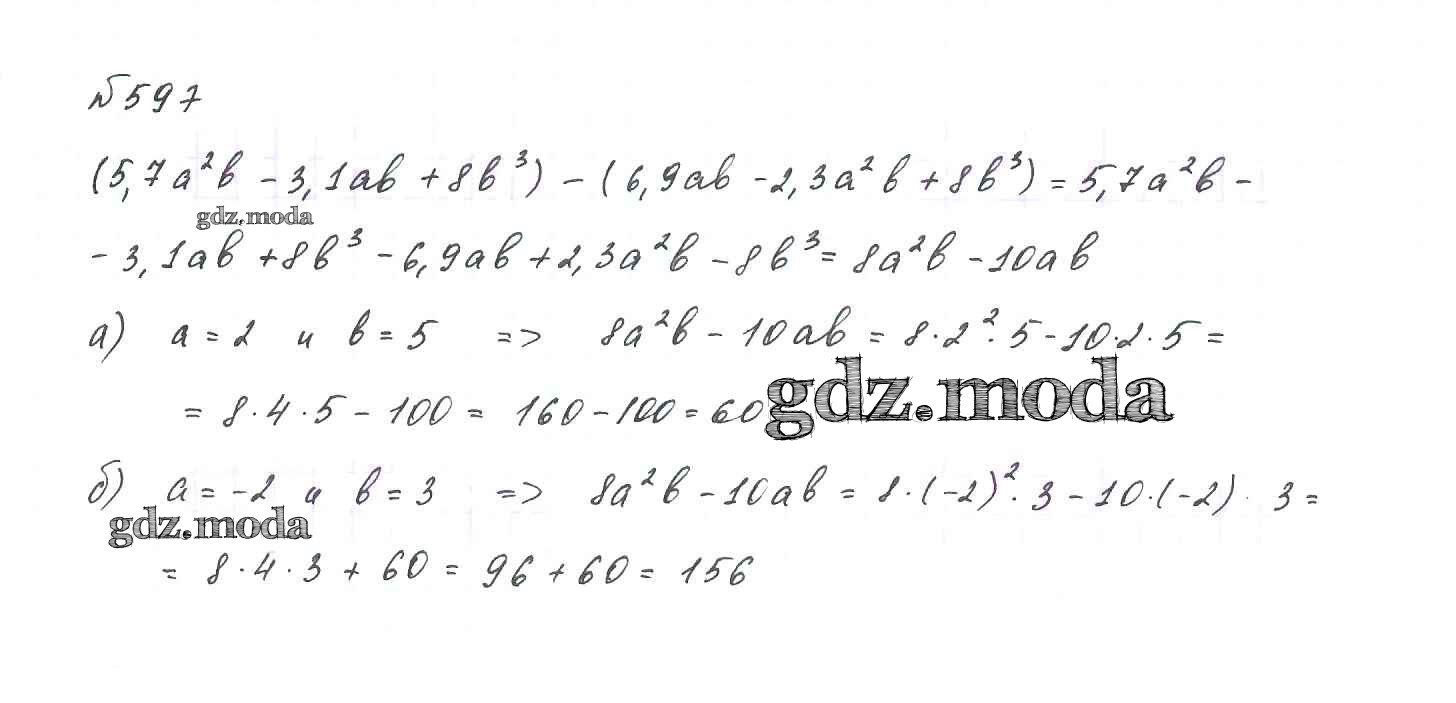 №597
(5,7a²b - 3,1ab + 8b³) - (6,9ab - 2,3a²b + 8b³) = 5,7a²b -
gdz.moda
- 3,1ab + 8b³ - 6,9ab + 2,3a²b - 8b³ = 8a²b - 10ab
а) a = 2 и b = 5 => 8a²b - 10ab = 8·2²·5 - 10·2·5 =
= 8·4·5 - 100 = 160 - 100 = 60
gdz.moda
б) a = -2 и b = 3 => 8a²b - 10ab = 8·(-2)²·3 - 10·(-2)·3 =
gdz.moda
= 8·4·3 + 60 = 96 + 60 = 156